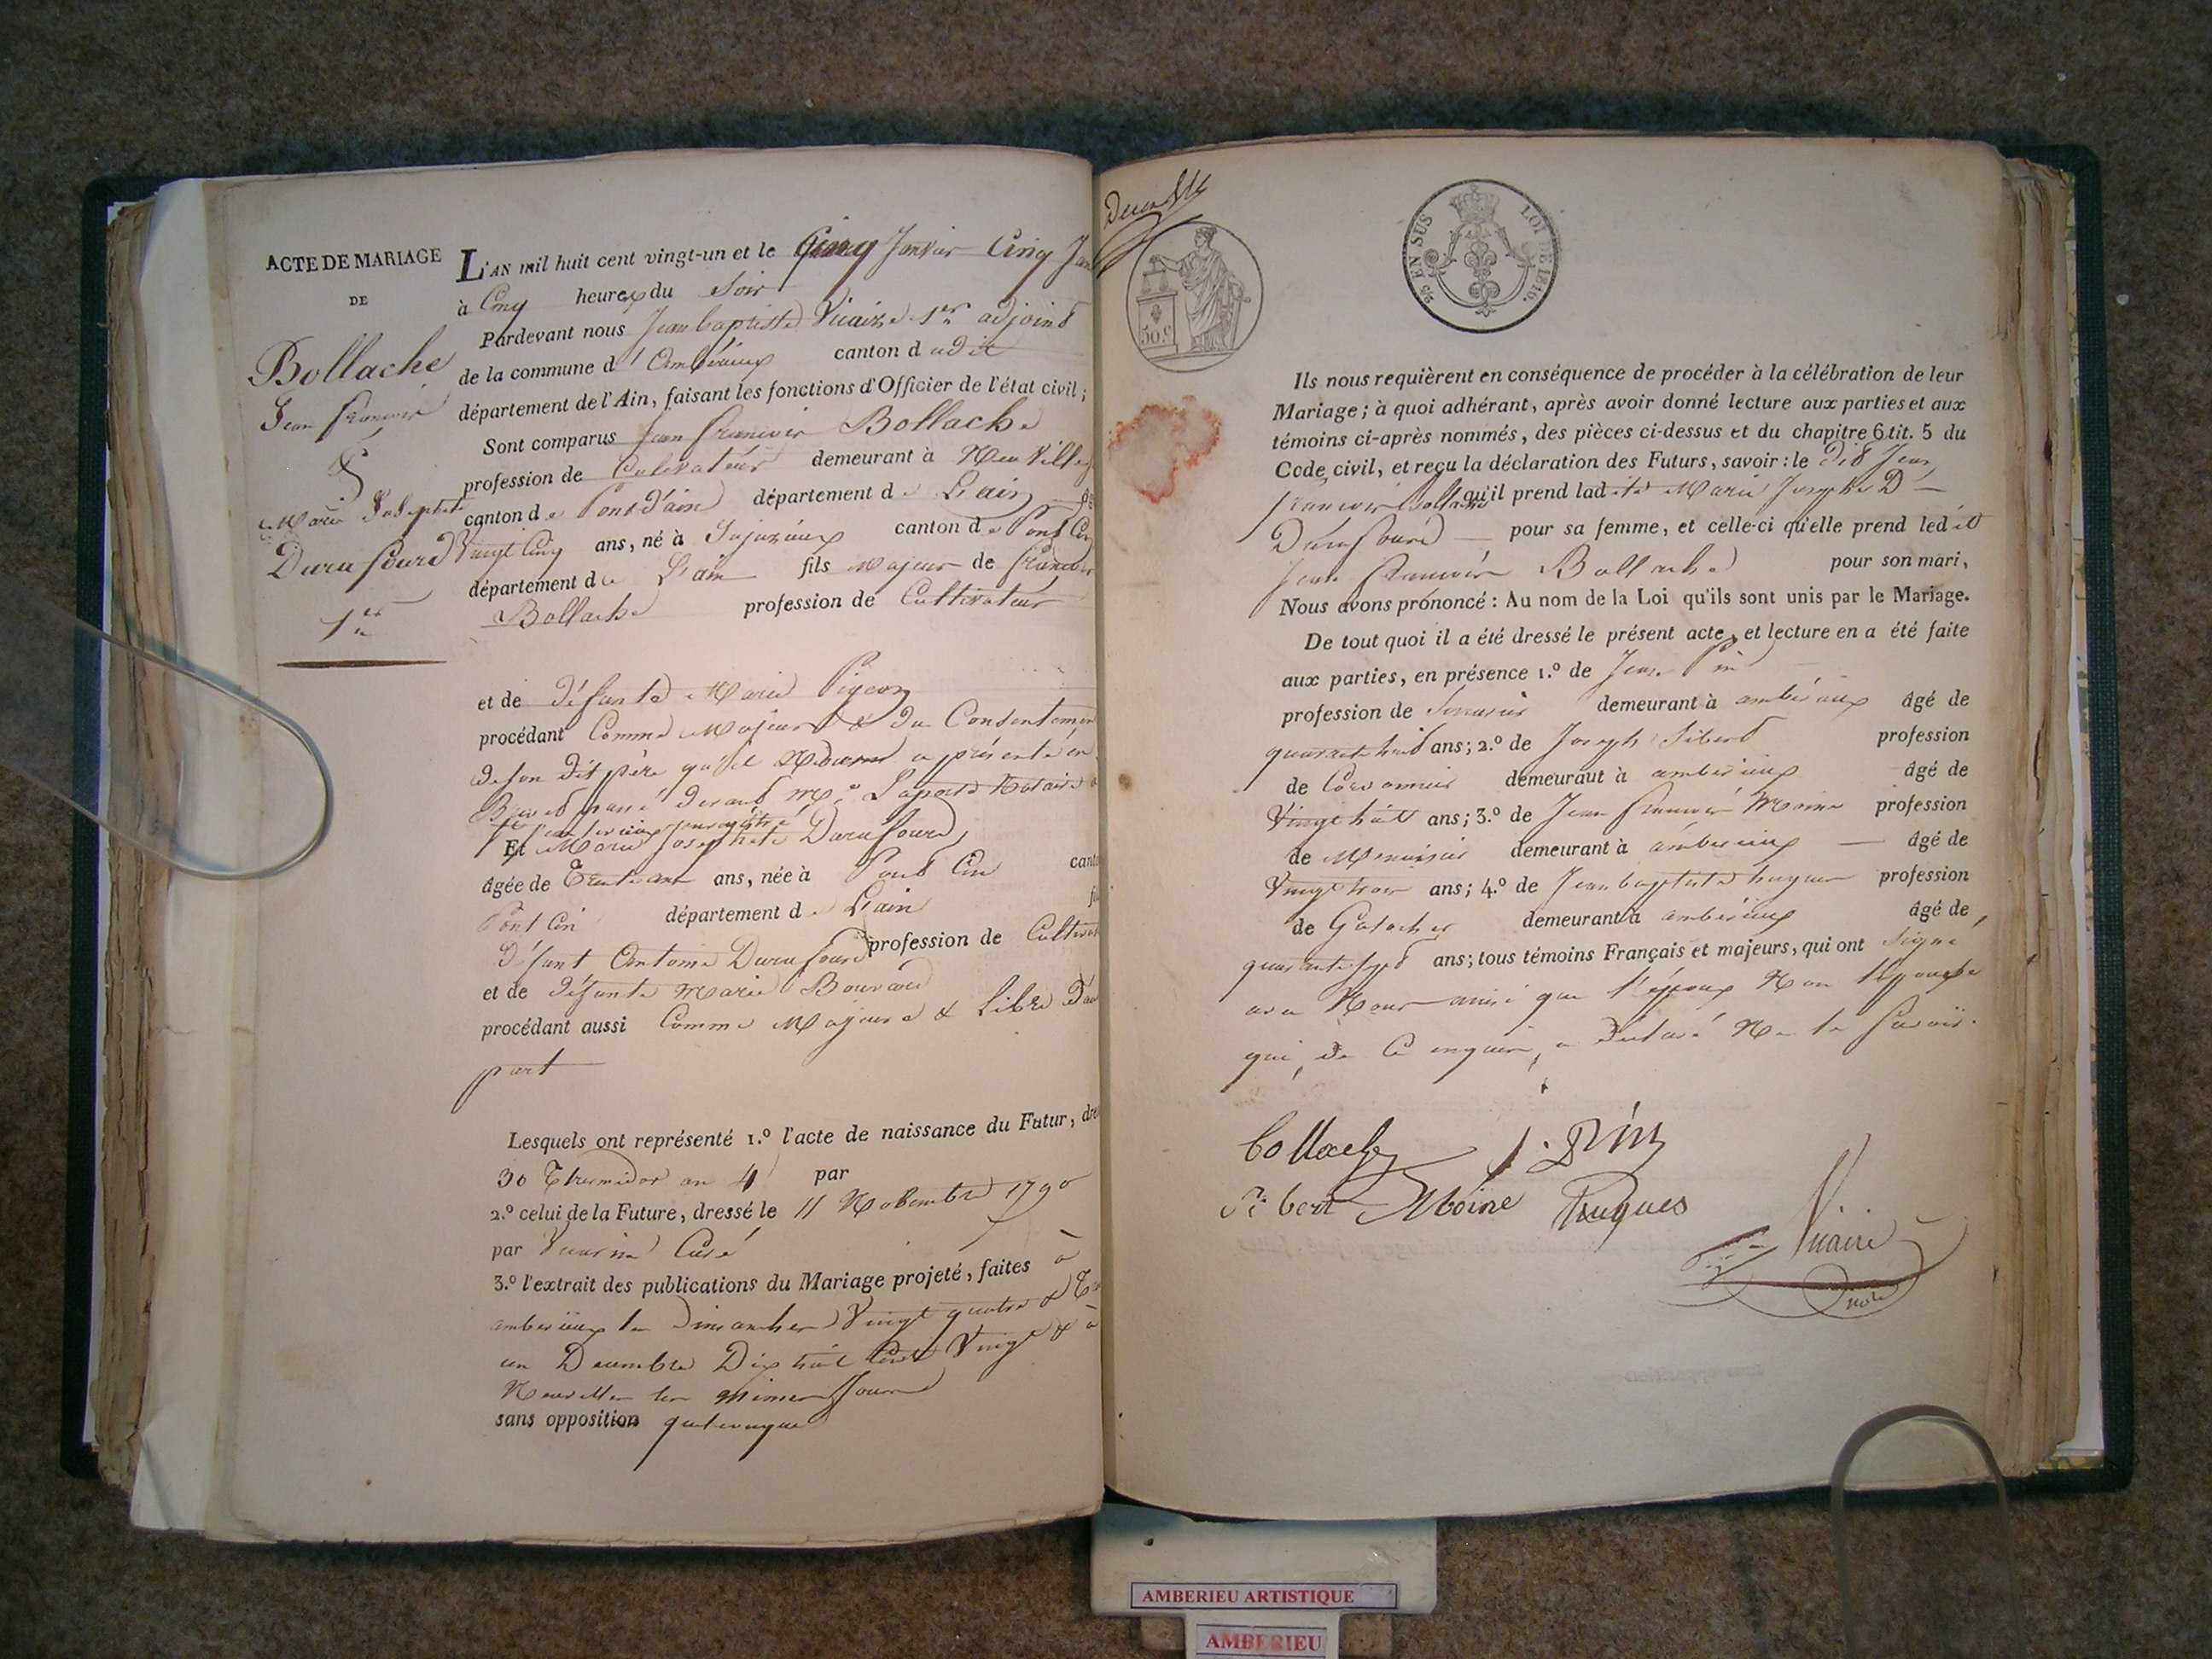 ACTE DE MARIAGE
DE
Bollache
Jean françois
&
Marie Josephte
Durufour
1er
L'AN mil huit cent vingt-un et le Cinq Janvier Cinq
à Cinq heures du Soir
Pardevant nous Jean baptiste Vicaire 1er adjoint
de la commune d'Ambérieux canton dudit
département de l'Ain, faisant les fonctions d'Officier de l'état civil ;
Sont comparus Jean françois Bollache
profession de Cultivateur demeurant à Neuville
canton de Pontd'ain département de L'ain
Vingt Cinq ans, né à Jujurieux canton de Pont
département de L'ain fils majeur de françois
Bollache profession de Cultivateur
et de défunte Marie Pigeon
procédant Comme Majeur & du Consentement
de son dit père qu'il a présenté
Brevet passé devant Me notaire
Et Marie Josephte Durufour
âgée de Trente ans, née à Pont Cin
Pont Cin département de L'ain
défunt Antoine Durufour profession de
et de défunte Marie Bouvard
procédant aussi Comme Majeure & libre
part
Lesquels ont représenté 1.º l'acte de naissance du Futur,
30 Thermidor an 4 par
2.º celui de la Future, dressé le 11 Novembre 1790
par Curé
3.º l'extrait des publications du Mariage projeté, faites à
ambérieux les Dimanches Vingt quatre &
un Decembre Dix huit Cent Vingt & à
Neuville les mêmes Jours
sans opposition quelconque
50 c
2/5 EN SUS LOI DE 1816.
Ils nous requièrent en conséquence de procéder à la célébration de leur
Mariage ; à quoi adhérant, après avoir donné lecture aux parties et aux
témoins ci-après nommés, des pièces ci-dessus et du chapitre 6 tit. 5 du
Code civil, et reçu la déclaration des Futurs, savoir : le dit Jean
françois Bollache qu'il prend ladite Marie Josephte
Durufour pour sa femme, et celle-ci qu'elle prend ledit
Jean françois Bollache pour son mari,
Nous avons prononcé : Au nom de la Loi qu'ils sont unis par le Mariage.
De tout quoi il a été dressé le présent acte, et lecture en a été faite
aux parties, en présence 1.º de Jean Pin
profession de Serrurier demeurant à ambérieux âgé de
quarante huit ans ; 2.º de Joseph Sibert profession
de Cordonnier demeuraut à ambérieux âgé de
Vingt huit ans ; 3.º de Jean françois Moine profession
de Menuisier demeurant à ambérieux âgé de
Vingt trois ans ; 4.º de Jean baptiste hugues profession
de Galocher demeurant à ambérieux âgé de
quarante sept ans ; tous témoins Français et majeurs, qui ont signé
avec Nous ainsi que l'époux Non l'épouse
qui, de ce enquise, a déclaré Ne le savoir.
Bollache J. Pin
Sibert Moine hugues
Vicaire
AMBERIEU ARTISTIQUE
AMBERIEU